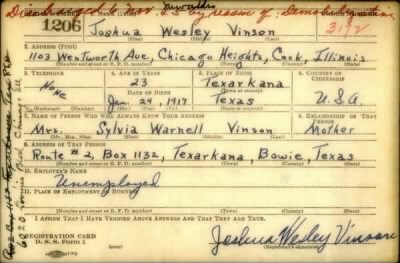 Discharged 6 Nov U.S by reason of : Demobilization
1206
3192
Joshua Wesley Vinson
2. Address (Print)
1103 Wentworth Ave, Chicago Heights, Cook, Illinois
(Number and street or R. F. D. number) (Town) (County) (State)
3. Telephone
None
(Exchange) (Number)
4. Age in Years
23
Date of Birth
Jan 29, 1917
(Mo.) (Day) (Yr.)
5. Place of Birth
Texarkana
(Town or county)
Texas
(State or country)
6. Country of Citizenship
U.S.A.
7. Name of Person Who Will Always Know Your Address
Mrs. Sylvia Warnell Vinson
(Mr., Mrs., Miss) (First) (Middle) (Last)
8. Relationship of That Person
Mother
9. Address of That Person
Route #2, Box 1132, Texarkana, Bowie, Texas
(Number and street or R. F. D. number) (Town) (County) (State)
10. Employer's Name
Unemployed
11. Place of Employment or Business
(Number and street or R. F. D. number) (Town) (County) (State)
I Affirm That I Have Verified Above Answers and That They Are True.
Registration Card
D. S. S. Form 1
Joshua Wesley Vinson